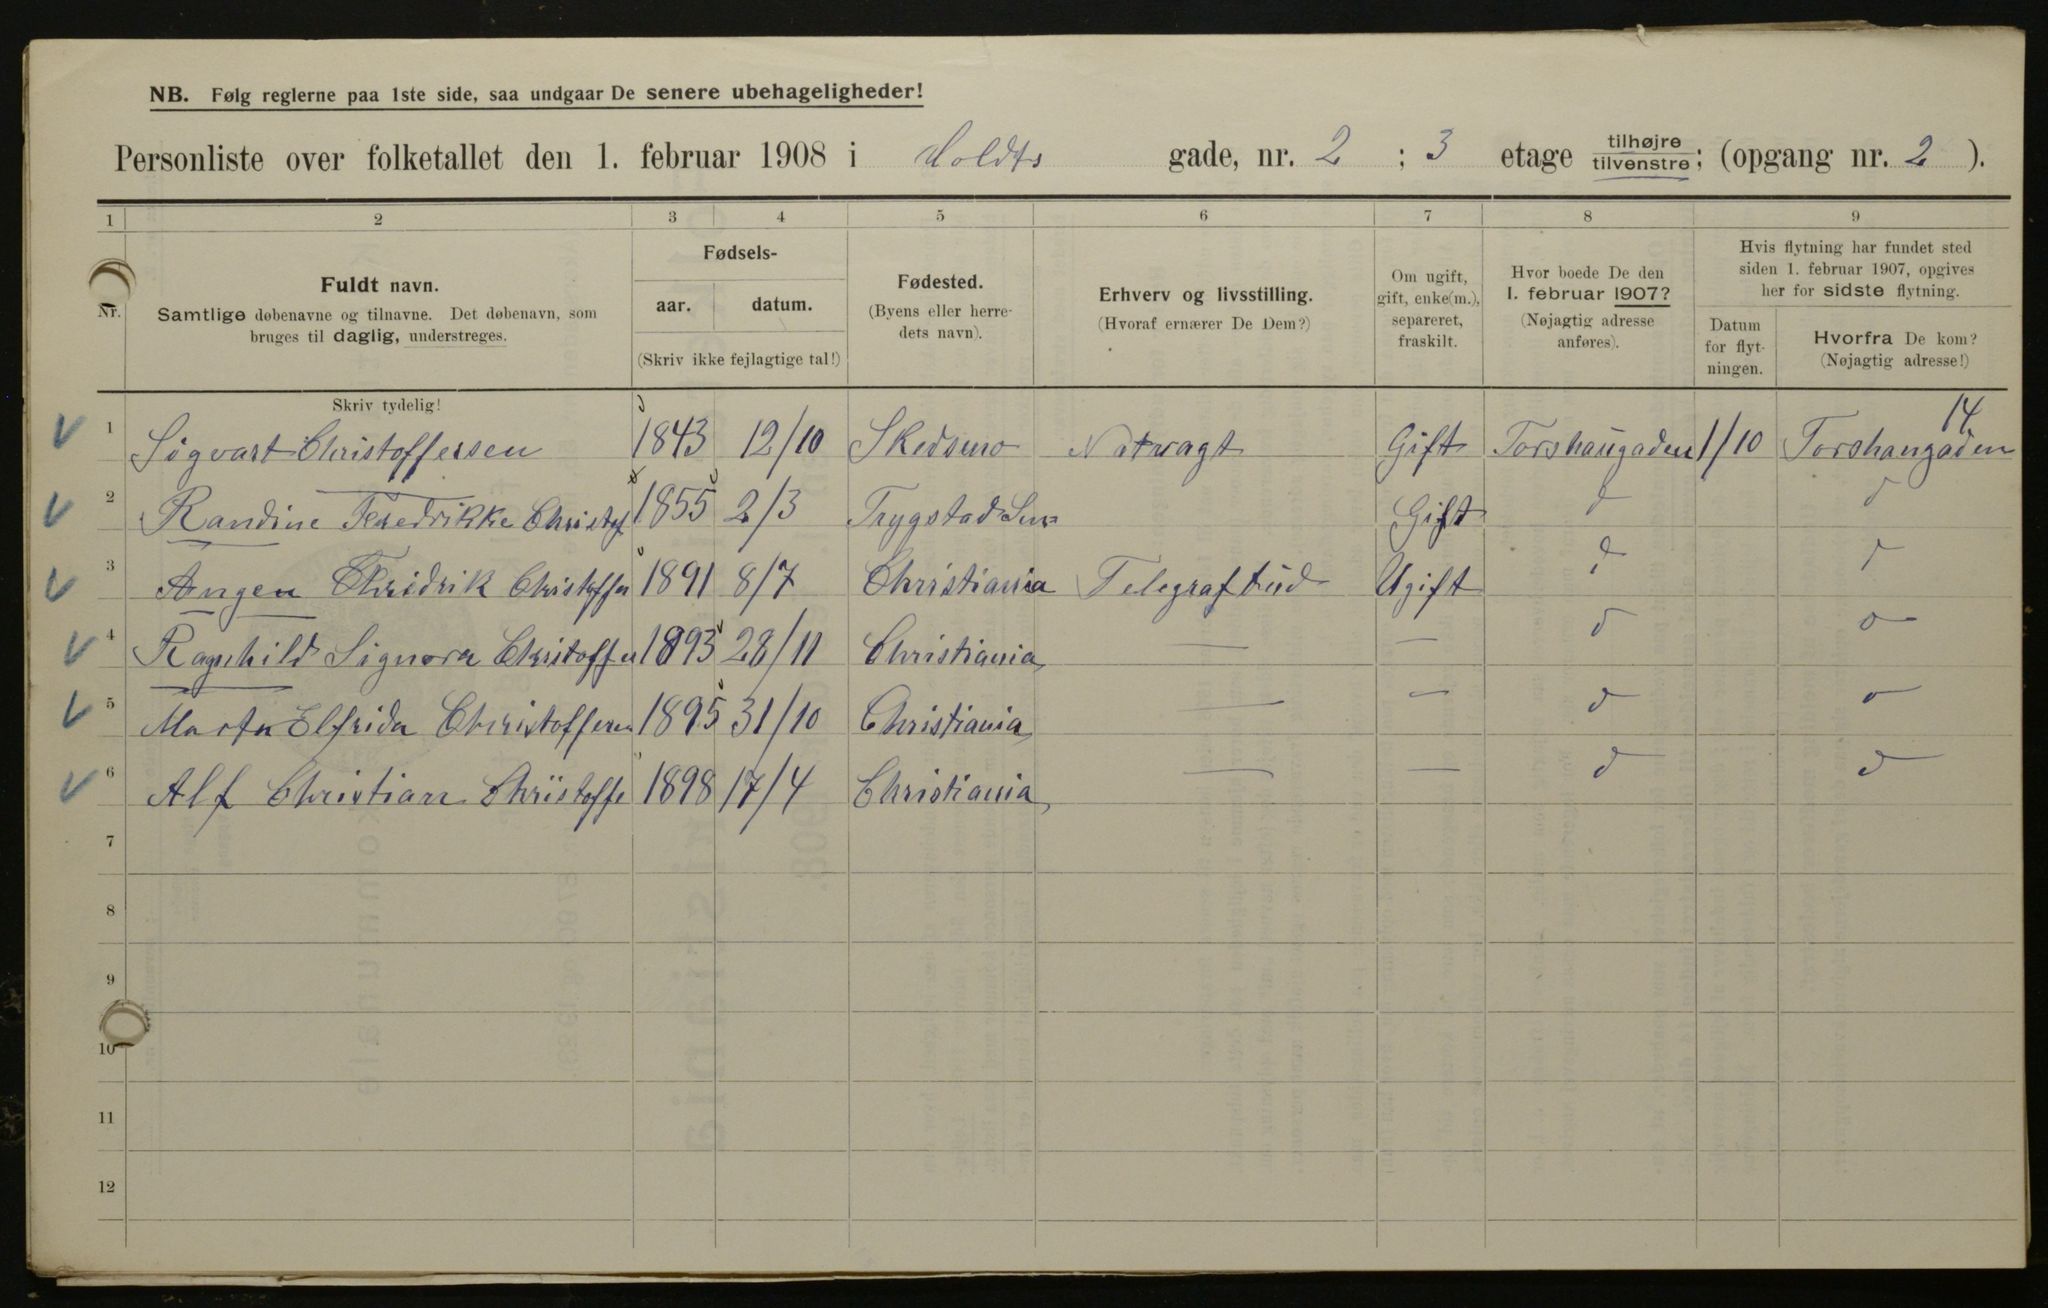 NB. Følg reglerne paa 1ste side, saa undgaar De senere ubehageligheder!
Personliste over folketallet den 1. februar 1908 i Holdts gade, nr. 2 ; 3 etage tilhøjre tilvenstre; (opgang nr. 2 ).
1 2 3 4 5 6 7 8 9
Nr.
Fuldt navn.
Samtlige døbenavne og tilnavne. Det døbenavn, som
bruges til daglig, understreges.
Fødsels-
aar. datum.
(Skriv ikke fejlagtige tal!)
Fødested.
(Byens eller herre-
dets navn).
Erhverv og livsstilling.
(Hvoraf ernærer De Dem?)
Om ugift,
gift, enke(m.),
separeret,
fraskilt.
Hvor boede De den
1. februar 1907?
(Nøjagtig adresse
anføres).
Hvis flytning har fundet sted
siden 1. februar 1907, opgives
her for sidste flytning.
Datum
for flyt-
ningen.
Hvorfra De kom?
(Nøjagtig adresse!)
Skriv tydelig!
1 Sigvart Christoffersen 1843 12/10 Skedsmo Natvagt Gift Torshaugaden 1/10 Torshaugaden 14
2 Randine Fredrikke Christof 1855 2/3 Trygstad Gift d d
3 Angen Fhridrik Christoffer 1891 8/7 Christiania Telegrafbud Ugift d d
4 Ragnhild Signora Christoffer 1893 28/11 Christiania — — d d
5 Marta Elfrida Christofferen 1895 31/10 Christiania — — d d
6 Alf Christian Christoffe 1898 17/4 Christiania — — d d
7
8
9
10
11
12